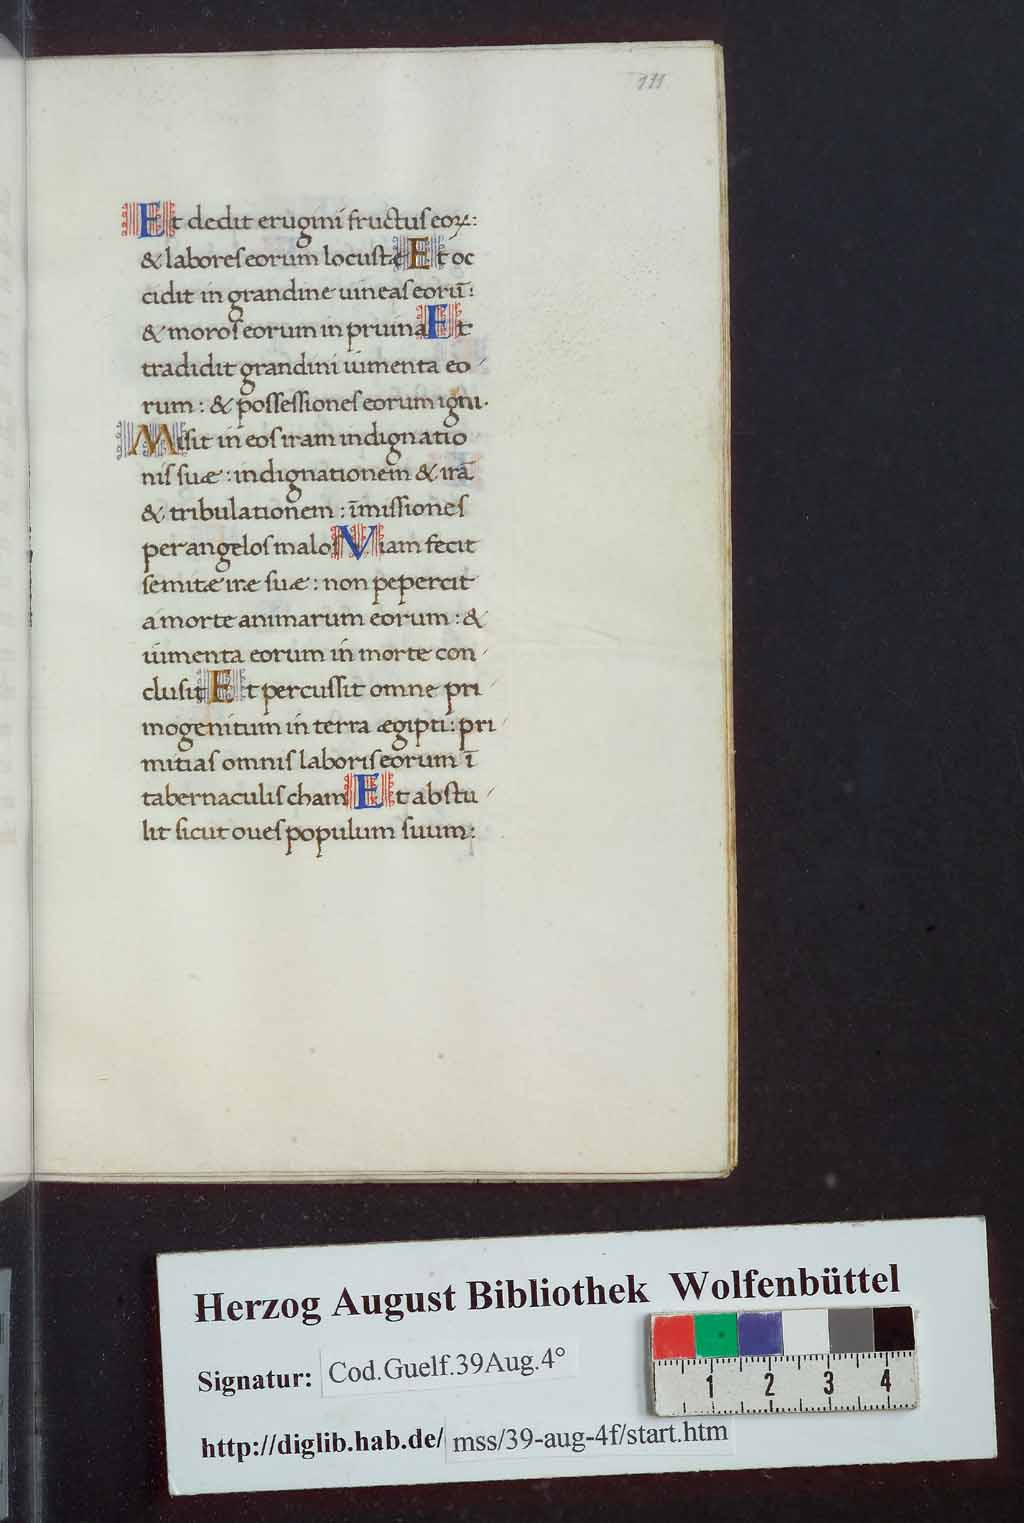 111
Et dedit erugini fructus eoꝝ:
& labores eorum locustæ Et oc
cidit in grandine uineas eorū:
& moros eorum in pruina Et
tradidit grandini iumenta eo
rum: & possessiones eorum igni.
Misit in eos iram indignatio
nis suæ: indignationem & irā
& tribulationem: īmissiones
per angelos malos Viam fecit
semitæ iræ suæ: non pepercit
a morte animarum eorum: &
iumenta eorum in morte con
clusit Et percussit omne pri
mogenitum in terra ægipti: pri
mitias omnis laboris eorum ī
tabernaculis cham Et abstu
lit sicut oues populum suum:
Herzog August Bibliothek Wolfenbüttel
Signatur: Cod.Guelf.39Aug.4°
1 2 3 4
http://diglib.hab.de/ mss/39-aug-4f/start.htm